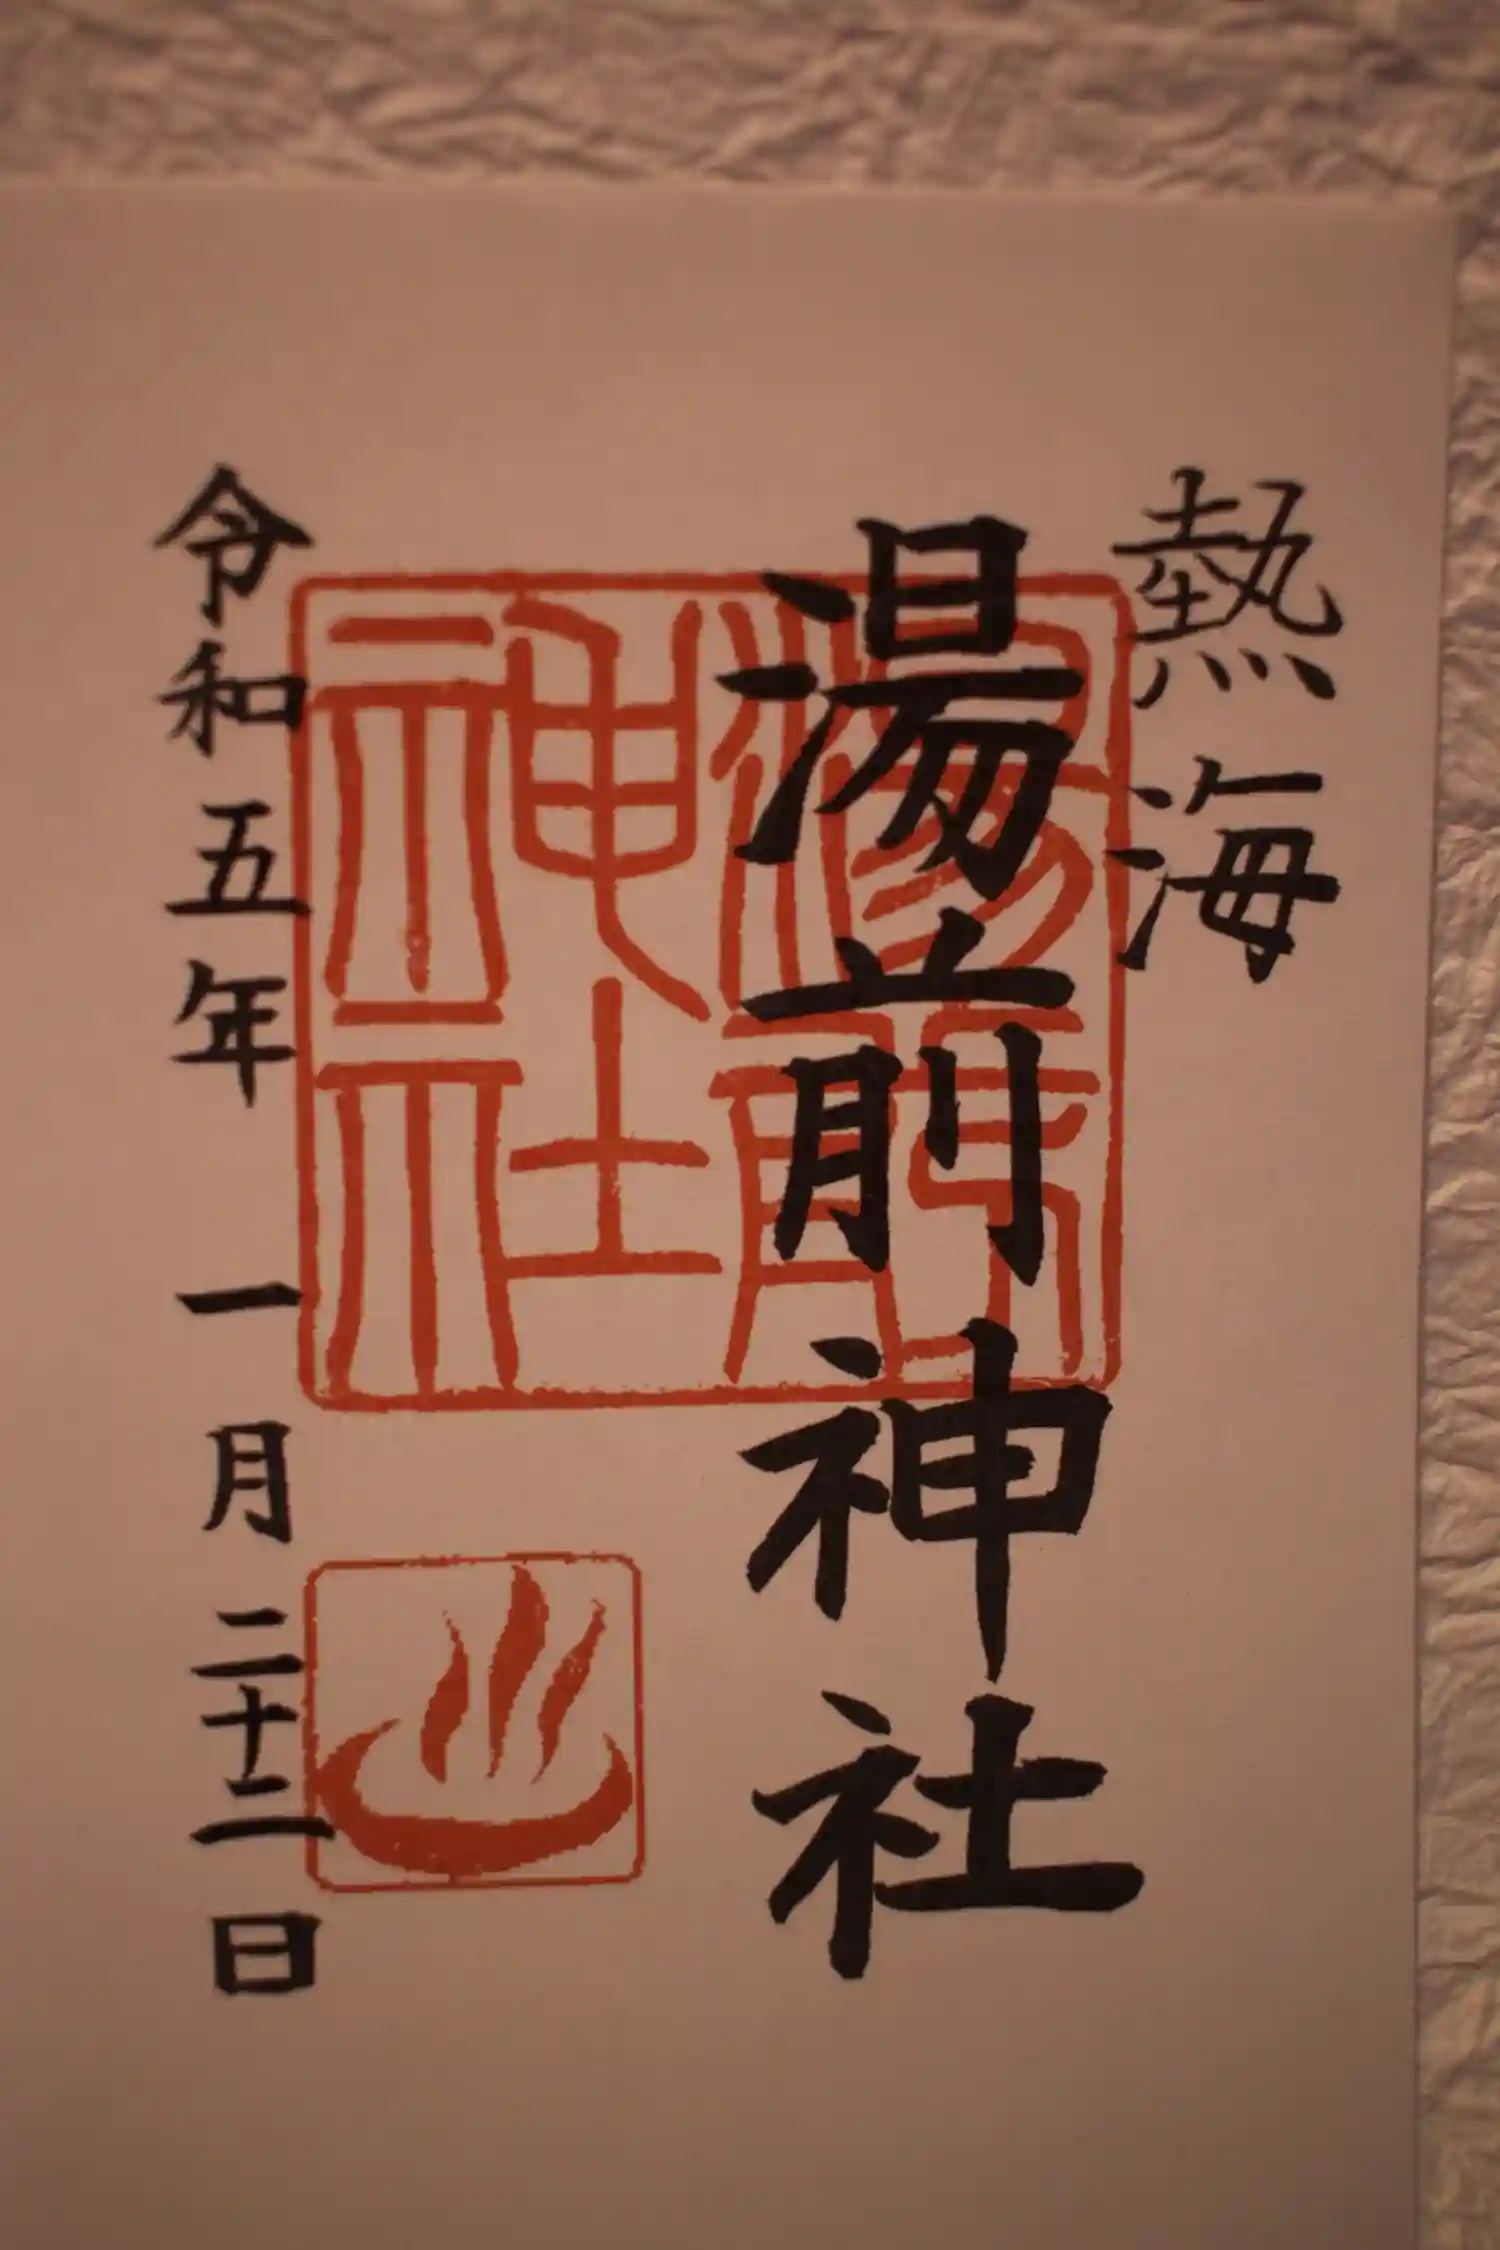 熱海
湯前神社
湯前神社
令和五年 一月 二十二日